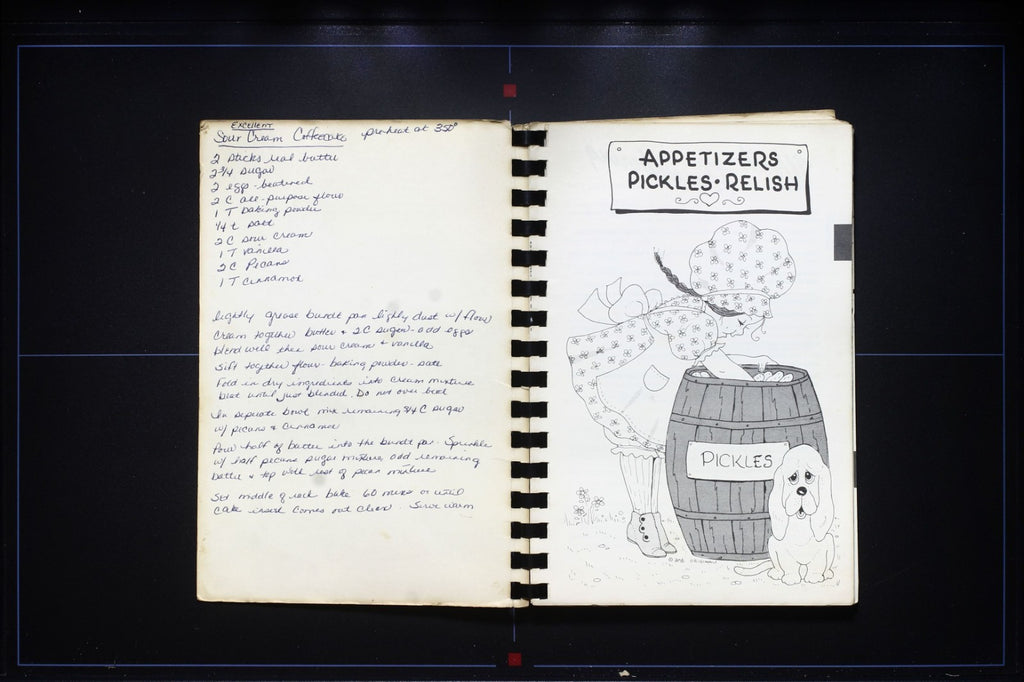 Excellent
Sour Cream Coffeecake preheat at 350°
2 sticks real butter
2 3/4 sugar
2 eggs - beatened
2 C all-purpose flour
1 T baking powder
1/4 t salt
2 C sour cream
1 T vanilla
2 C Pecans
1 T cinnamon
lightly grease bundt pan lighly dust w/ flour
Cream together butter + 2 C sugar - add eggs
blend well then sour cream + vanilla
Sift together flour - baking powder - salt
Fold in dry ingredients into cream mixture
beat until just blended. Do not over beat
In separate bowl mix remaining 3/4 C sugar
w/ pecans & cinnamon
Pour half of batter into the bundt pan. Sprinkle
w/ half pecans sugar mixture, add remaining
batter & top with rest of pecan mixture
Set middle of rack bake 60 mins or until
cake insert comes out clean. Serve warm
APPETIZERS
PICKLES • RELISH
PICKLES